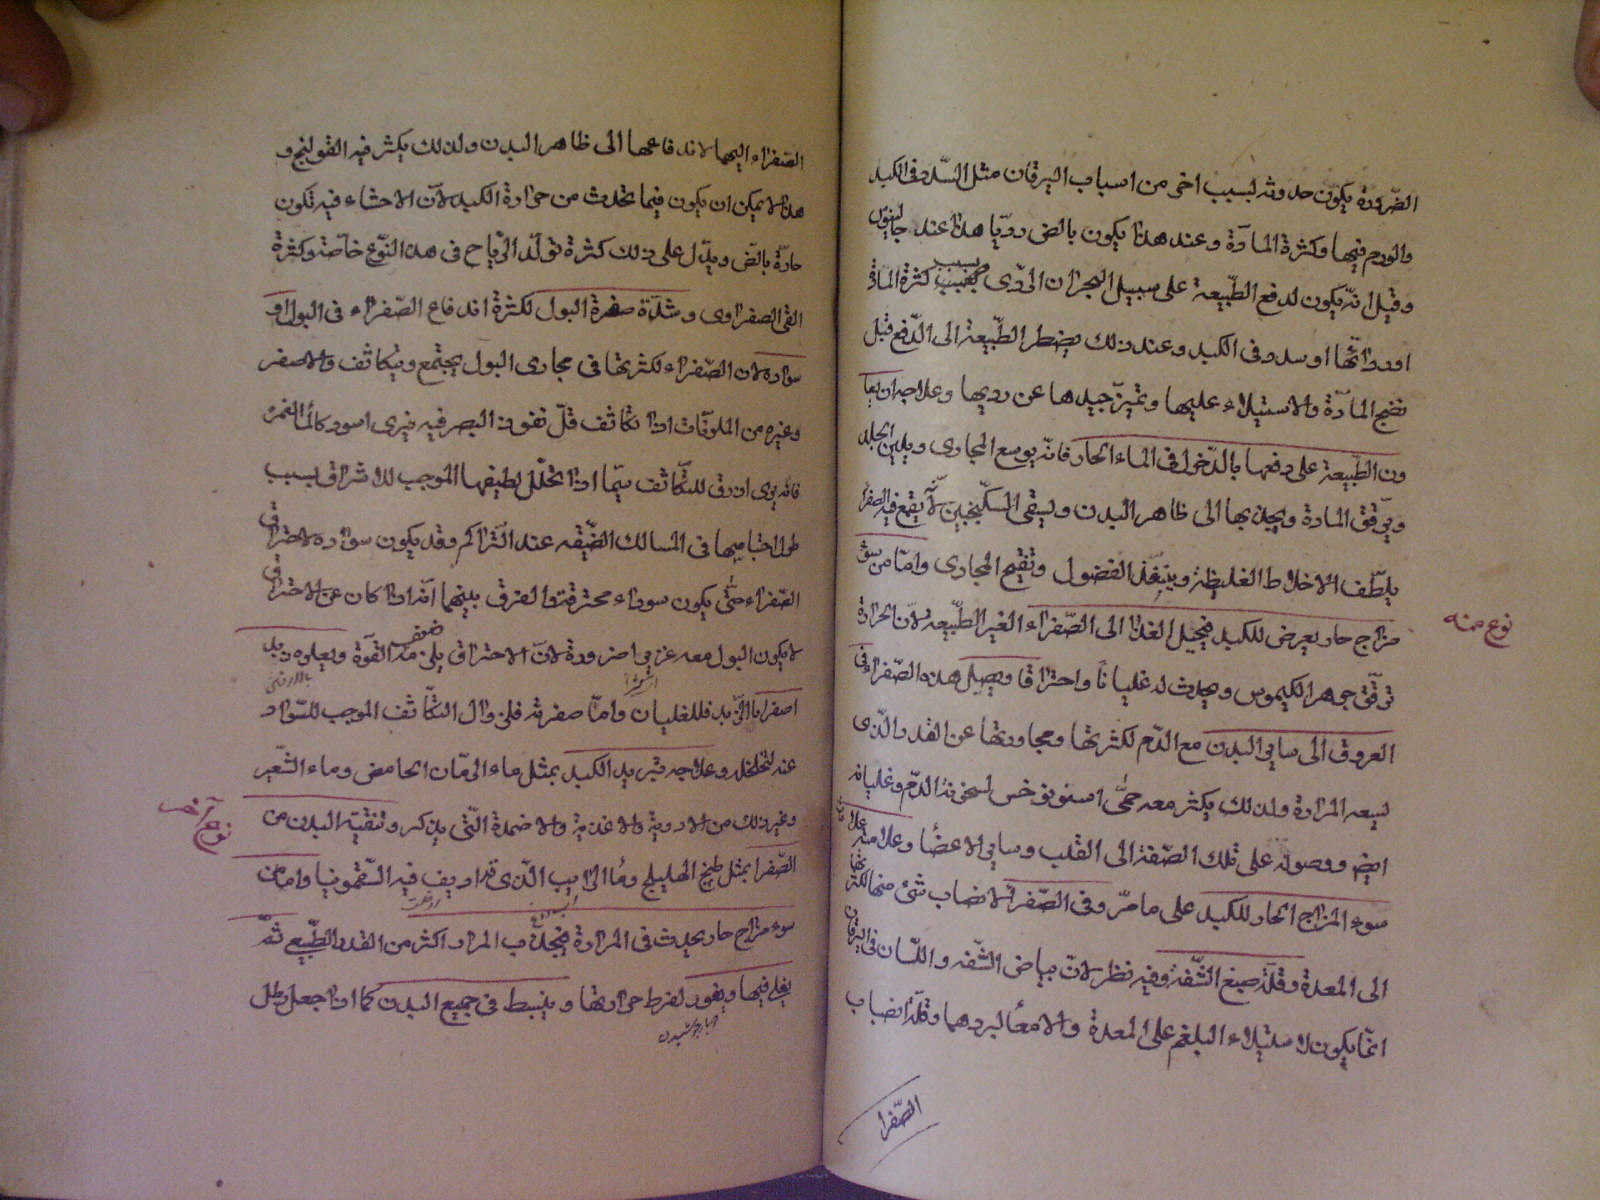 الضرورة يكون حدوثه لسبب اخر من اسباب اليرقان مثل السّدد فى الكبد
والورم فيها وكثرة المادّة وعند هذا يكون بالضرورة رديّا هذا عند جالينوس
وقيل انّه يكون لدفع الطّبيعة على سبيل البحران الردّى بسبب كثرة المادة
او رداءتها او سدد فى الكبد وعند ذلك يضطر الطّبيعة الى الدّفع قبل
نضج المادّة والاستيلاء عليها وتميّز جيدها عن رديها وعلاجه ان يعا
ون الطّبيعة على دفعها بالدّخول فى الماء الحار فانّه يوسع المجارى ويلين الجلد
ويرقّق المادة ويجذبها الى ظاهر البدن ويسقى السكنجبين لانّه يقمع فيه الصفرا
يلطّف الاخلاط الغليظة وينفذ الفضول وتفتح المجارى وامّا من سوء
مزاج حار يعرض للكبد فيحيل الغذا الى الصّفراء الغير الطّبيعة لانّ الحرارة
نوع منه
ترقّق جوهر الكيموس ويحدث له غليانًا واحتراقا ويصل هذه الصّفراء فى
العروق الى ساير البدن مع الدّم لكثرتها ومجاوزتها عن القدر الذى
يسعه المرارة ولذلك يكثر معه حمّى سونوخس لسخونة الدّم وغليانه
ايض ووصوله على تلك الصّفة الى القلب وساير الاعضاء وعلامته علامات
سوء المزاج الحار للكبد على ما مرّ وقى الصّفرا لانصاب شئ منها لكثرتها
الى المعدة وقلّة صبغ الشّفة وفيه نظر لانّ بياض الشّفه واللّسان فى اليرقان
انّما يكون لاستيلاء البلغم على المعدة والامعا لبردهما وقلّة انصباب
الصّفرا
الصّفراء اليها لاندفاعها الى ظاهر البدن ولذلك يكثر فيه القولنج و
هذا لا يمكن ان يكون فيما يحدث من حرارة الكبد لانّ الاحشاء فيه تكون
حارّة بالضّ ويدّل على ذلك كثرة تولّد الرّياح فى هذا النّوع خاصّة وكثرة
القى الصفراوى وشدّة صفرة البول لكثرة اندفاع الصّفراء فى البول او
سواده لان الصّفراء لكثرتها فى مجارى البول يجتمع ويتكاثف والاصفر
وغيره من الملوّنات اذا تكاثف قلّ نفوذ البصر فيه فيرى اسود كالماء الغمر
فانّه يرى ازرق للتكاثف سيّما اذا تحلّل لطيفها الموجب للاشراق بسبب
طول احتباسها فى المسالك الضّيّقه عند التّراكم وقد يكون سواده لاحتراق
الصّفراء حتّى يكون سوداء محترقة والفرق بينهما انّه اذا كان عن الاحتراق
لا يكون البول معه غزيرا ضرورة لانّ الاحتراق يلزمه ضعف القوّة ويعلوه زبد
اصفر امّا الزّبد فللغليان وامّا صفرته فلزوال التكاثف الموجب للسّواد
عند تخلخله وعلاجه تبريد الكبد بمثل ماء الرّمان الحامض وماء الشّعير
وغير ذلك من الادوية والاغذية والاضمدة التّى يذكر وتنقية البدن من
نوع آخر
الصّفرا بمثل طبخ الهليلج وماء الرايب الذى قد اديف فيه السّقمونيا وامّا من
سوء مزاج حار يحدث فى المرارة فيجذب المرار اكثر من القدر الطّبيعى ثمّ
يغلى فيها ويفور لفرط حرارتها وينبسط فى جميع البدن كما اذا جعل رطل